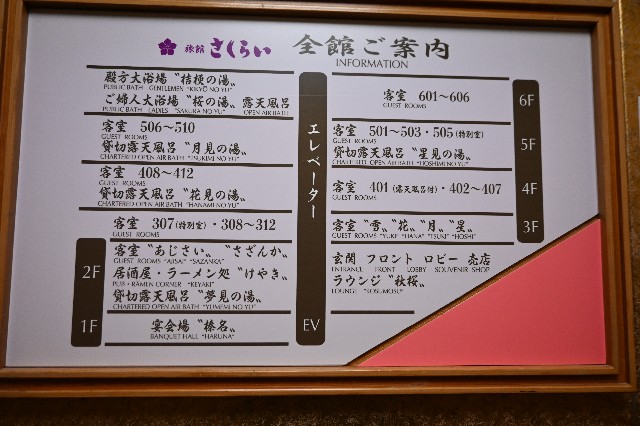 旅館 さくらい 全館ご案内
INFORMATION
殿方大浴場〝桔梗の湯〟
PUBLIC BATH GENTLEMEN "KIKYŌ NO YU"
ご婦人大浴場〝桜の湯〟 露天風呂
PUBLIC BATH LADIES "SAKURA NO YU" OPEN AIR BATH
客室 506〜510
GUEST ROOMS
貸切露天風呂〝月見の湯〟
CHARTERED OPEN AIR BATH "TSUKIMI NO YU"
客室 408〜412
GUEST ROOMS
貸切露天風呂〝花見の湯〟
CHARTERED OPEN AIR BATH "HANAMI NO YU"
客室 307(特別室)・308〜312
GUEST ROOMS
2F
客室〝あじさい〟〝さざんか〟
GUEST ROOMS "AJISAI" "SAZANKA"
居酒屋・ラーメン処〝けやき〟
PUB・RAMEN CORNER "KEYAKI"
貸切露天風呂〝夢見の湯〟
CHARTERED OPEN AIR BATH "YUMEMI NO YU"
1F
宴会場〝榛名〟
BANQUET HALL "HARUNA"
エレベーター
EV
客室 601〜606
GUEST ROOMS
6F
客室 501〜503・505(特別室)
GUEST ROOMS
貸切露天風呂〝星見の湯〟
CHARTERED OPEN AIR BATH "HOSHIMI NO YU"
5F
客室 401(露天風呂付)・402〜407
GUEST ROOMS
4F
客室〝雪〟〝花〟〝月〟〝星〟
GUEST ROOMS "YUKI" "HANA" "TSUKI" "HOSHI"
3F
玄関 フロント ロビー 売店
ENTRANCE FRONT LOBBY SOUVENIR SHOP
ラウンジ〝秋桜〟
LOUNGE "KOSUMOSU"